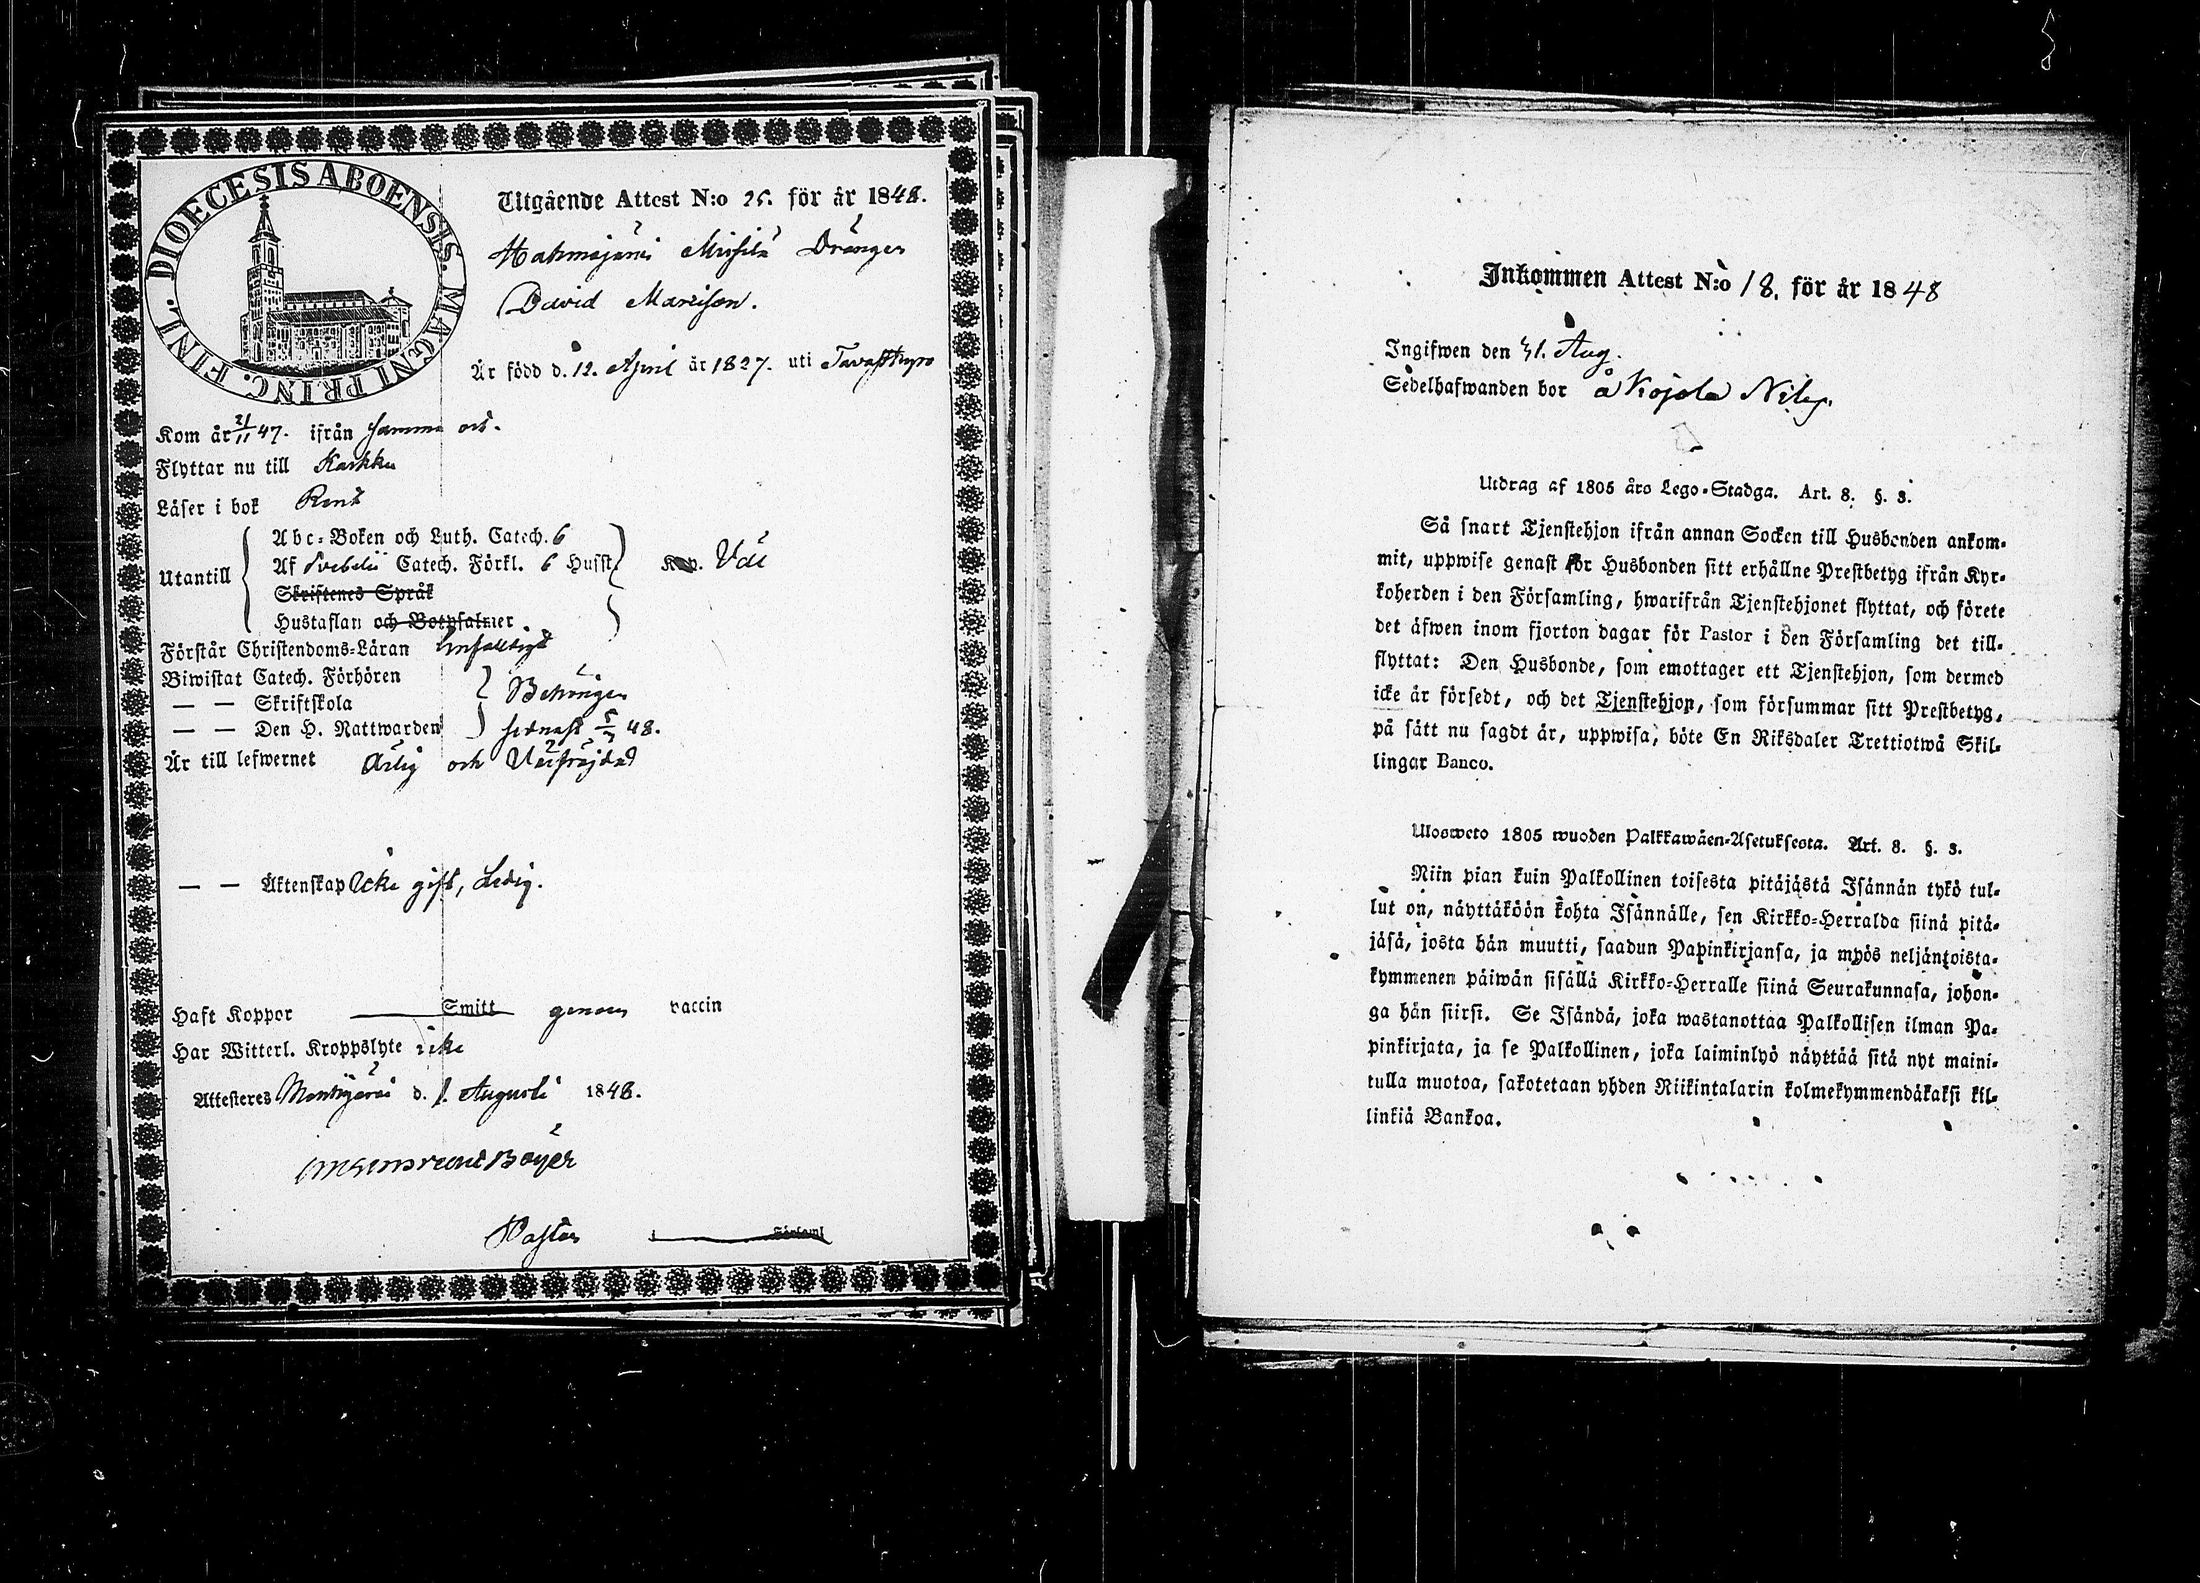 DIOECESIS ABOENSIS. MAGNI PRINC. FINL.
Utgående Attest N:o 25. för år 1848.
Drängen
David
Är född d. 12. April år 1827. uti Tavastkyro
Kom år 21/11 47. ifrån samma ort.
Flyttar nu till Karkku
Läser i bok Rent
Utantill
Abc-Boken och Luth. Catech. 6
Af Svebelii Catech. Förkl. 6 Husst.
Skriftenes Språk
Hustaflan och Botpsalmer
Väl
Förstår Christendoms-Läran Enfaldigt
Biwistat Catech. Förhören
— — Skriftskola
— — Den H. Nattwarden
Behörigen
senast 48.
Är till lefwernet Ärlig och Välfräjdad
— — Äktenskap Icke gift, Ledig.
Haft Koppor Smitt genom vaccin
Har Witterl. Kroppslyte icke
Attesteres d. 1. Augusti 1848.
Pastor Församl
Inkommen Attest N:o 18. för år 1848
Ingifwen den 31. Aug.
Sedelhafwanden bor å Kojola
Utdrag af 1805 års Lego-Stadga. Art. 8. §. 3.
Så snart Tjenstehjon ifrån annan Socken till Husbonden ankom-
mit, uppwise genast för Husbonden sitt erhållne Prestbetyg ifrån Kyr-
koherden i den Församling, hwarifrån Tjenstehjonet flyttat, och förete
det äfwen inom fjorton dagar för Pastor i den Församling det till-
flyttat: Den Husbonde, som emottager ett Tjenstehjon, som dermed
icke är försedt, och det Tjenstehjon, som försummar sitt Prestbetyg,
på sätt nu sagdt är, uppwisa, böte En Riksdaler Trettiotwå Skil-
lingar Banco.
Ulosweto 1805 wuoden Palkkawäen-Asetuksesta. Art. 8. §. 3.
Niin pian kuin Palkollinen toisesta pitäjästä Isännän tykö tul-
lut on, näyttäköön kohta Isännälle, sen Kirkko-Herralda siinä pitä-
jäsä, josta hän muutti, saadun Papinkirjansa, ja myös neljäntoista-
kymmenen päiwän sisällä Kirkko-Herralle siinä Seurakunnasa, johon-
ga hän siirsi. Se Isändä, joka wastanottaa Palkollisen ilman Pa-
pinkirjata, ja se Palkollinen, joka laiminlyö näyttää sitä nyt maini-
tulla muotoa, sakotetaan yhden Riikintalarin kolmekymmendäkaksi kil-
linkiä Bankoa.